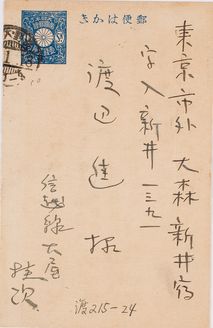 郵便はかき
東京市外大森新井宿
字入新井一三九一
渡辺進様
信越線大屋
桂次
渡215-24